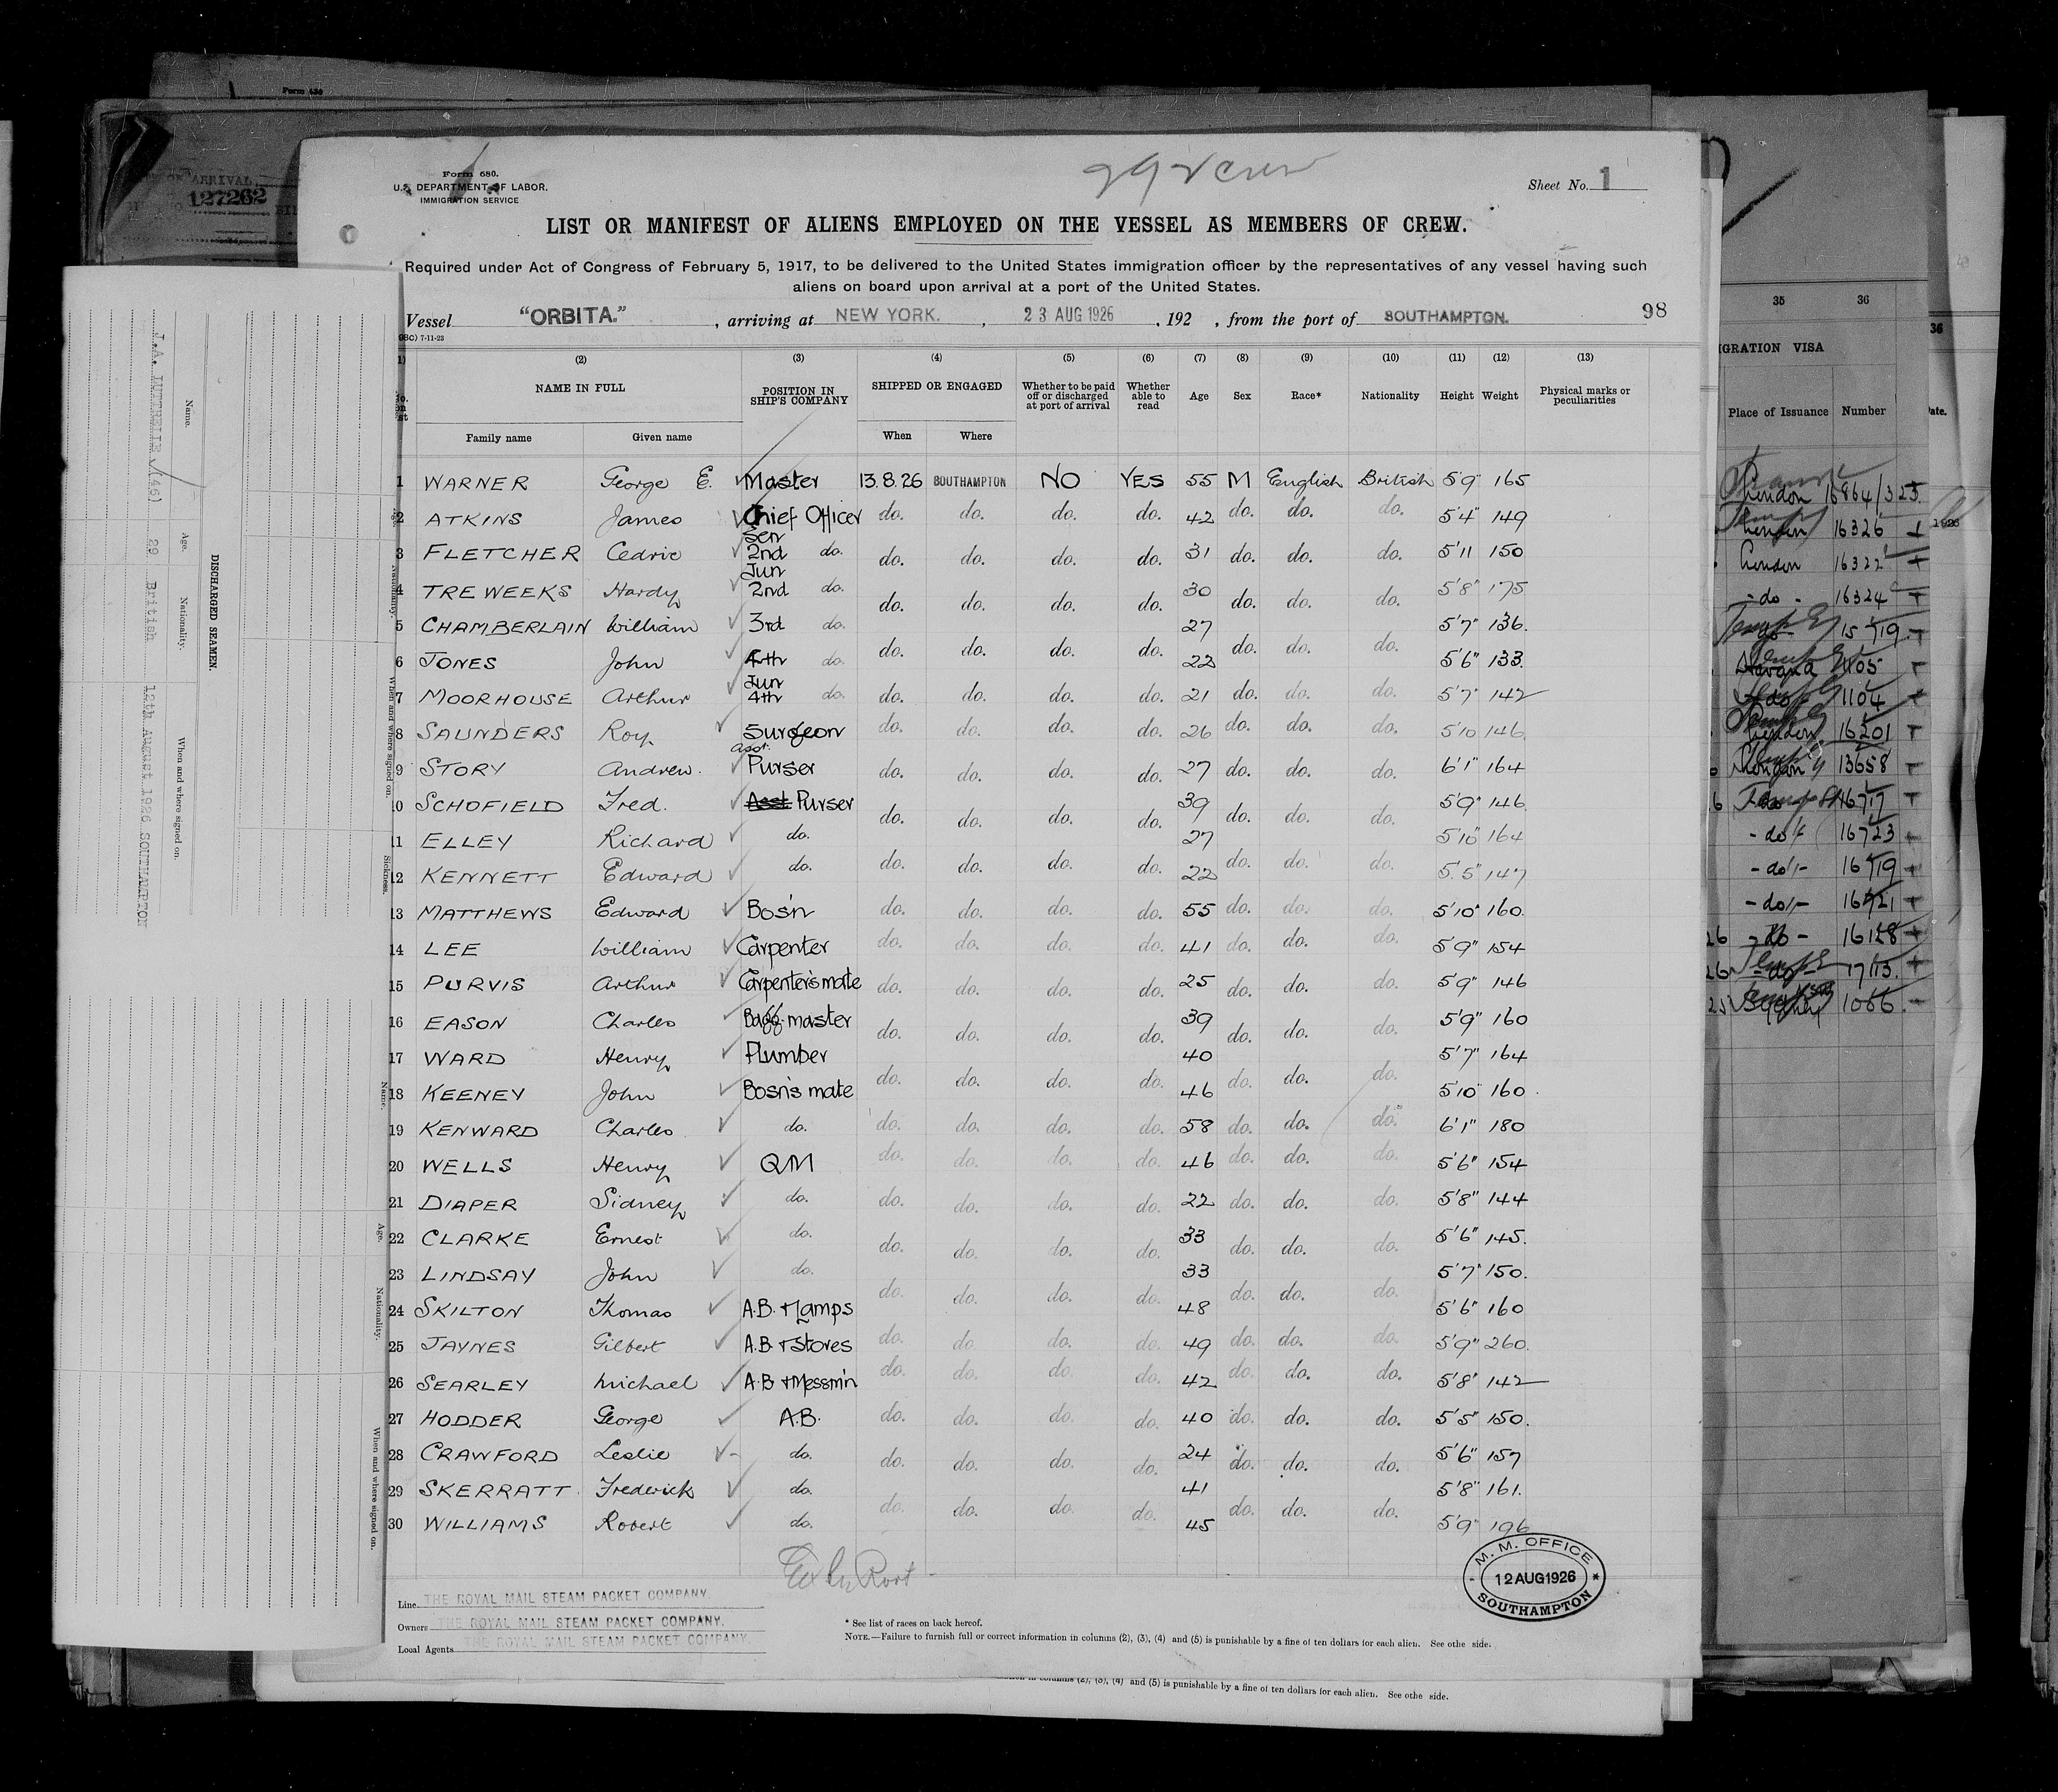 Form 630
OF ARRIVAL,
127262
Form 680.
U.S. DEPARTMENT OF LABOR.
IMMIGRATION SERVICE
Sheet No. 1
LIST OR MANIFEST OF ALIENS EMPLOYED ON THE VESSEL AS MEMBERS OF CREW.
Required under Act of Congress of February 5, 1917, to be delivered to the United States immigration officer by the representatives of any vessel having such
aliens on board upon arrival at a port of the United States.
Vessel "ORBITA." , arriving at NEW YORK. , 23 AUG 1926 , 192 , from the port of SOUTHAMPTON. 98
7-11-23
(2) (3) (4) (5) (6) (7) (8) (9) (10) (11) (12) (13)
NAME IN FULL POSITION IN SHIP'S COMPANY SHIPPED OR ENGAGED Whether to be paid off or discharged at port of arrival Whether able to read Age Sex Race* Nationality Height Weight Physical marks or peculiarities
Family name Given name When Where
1 WARNER George E. Master 13.8.26 SOUTHAMPTON NO YES 55 M English British 5'9" 165
2 ATKINS James Chief Officer do. do. do. do. 42 do. do. do. 5'4" 149
3 FLETCHER Cedric Sen 2nd do. do. do. do. do. 31 do. do. do. 5'11 150
4 TREWEEKS Hardy Jun 2nd do. do. do. do. do. 30 do. do. do. 5'8" 175
5 CHAMBERLAIN William 3rd do. 27 5'7" 136.
6 JONES John 4th do. do. do. do. do. 22 do. do. do. 5'6" 133.
7 MOORHOUSE Arthur Jun 4th do. do. do. do. do. 21 do. do. do. 5'7" 142
8 SAUNDERS Roy Surgeon do. do. do. do. 26 do. do. do. 5'10 146.
9 STORY Andrew. asst. Purser do. do. do. do. 27 do. do. do. 6'1" 164
10 SCHOFIELD Fred. Asst Purser do. do. do. do. 39 do. do. do. 5'9" 146.
11 ELLEY Richard do. 27 5'10" 164
12 KENNETT Edward do. do. do. do. do. 22 do. do. do. 5.5" 147
13 MATTHEWS Edward Bos'n do. do. do. do. 55 do. do. do. 5'10" 160.
14 LEE William Carpenter do. do. do. do. 41 do. do. do. 5'9" 154
15 PURVIS Arthur Carpenter's mate do. do. do. do. 25 do. do. do. 5'9" 146
16 EASON Charles Bagg. master do. do. do. do. 39 do. do. do. 5'9" 160
17 WARD Henry Plumber 40 5'7" 164
18 KEENEY John Bosn's mate do. do. do. do. 46 do. do. do. 5'10 160.
19 KENWARD Charles do. do. do. do. do. 58 do. do. do. 6'1" 180
20 WELLS Henry QM do. do. do. do. 46 do. do. do. 5'6" 154
21 DIAPER Sidney do. do. do. do. do. 22 do. do. do. 5'8" 144
22 CLARKE Ernest do. do. do. do. do. 33 do. do. do. 5'6" 145.
23 LINDSAY John do. 33 5'7" 150.
24 SKILTON Thomas A.B. + Lamps do. do. do. do. 48 do. do. do. 5'6" 160
25 JAYNES Gilbert A.B. + Stores do. do. do. do. 49 do. do. do. 5'9" 260.
26 SEARLEY Michael A.B + Messm'n do. do. do. do. 42 do. do. do. 5'8" 142
27 HODDER George A.B. do. do. do. do. 40 do. do. do. 5'5" 150.
28 CRAWFORD Leslie do. do. do. do. do. 24 do. do. do. 5'6" 157
29 SKERRATT. Frederick do. 41 5'8" 161.
30 WILLIAMS Robert do. do. do. do. do. 45 do. do. do. 5'9" 196
M. M. OFFICE
12 AUG 1926
SOUTHAMPTON
Line THE ROYAL MAIL STEAM PACKET COMPANY.
Owners THE ROYAL MAIL STEAM PACKET COMPANY.
Local Agents THE ROYAL MAIL STEAM PACKET COMPANY.
* See list of races on back hereof.
NOTE.—Failure to furnish full or correct information in columns (2), (3), (4) and (5) is punishable by a fine of ten dollars for each alien. See othe side.
in columns (2), (3), (4) and (5) is punishable by a fine of ten dollars for each alien. See othe side.
DISCHARGED SEAMEN.
Name. Age. Nationality. When and where signed on.
29 British 12th August 1926 SOUTHAMPTON
Nationality. When and where signed on. Sickness.
Name. Age. Nationality. When and where signed on.
35 36
IGRATION VISA
Place of Issuance Number
London 16864/325
London 16326
London 16322
- do - 16324
Havana 1105
do 1104
London 16201
London 13658
- do - 16723
- do - 16719
- do - 16721
26 - do - 16128
26 - do - 1713
36
Date.
1926